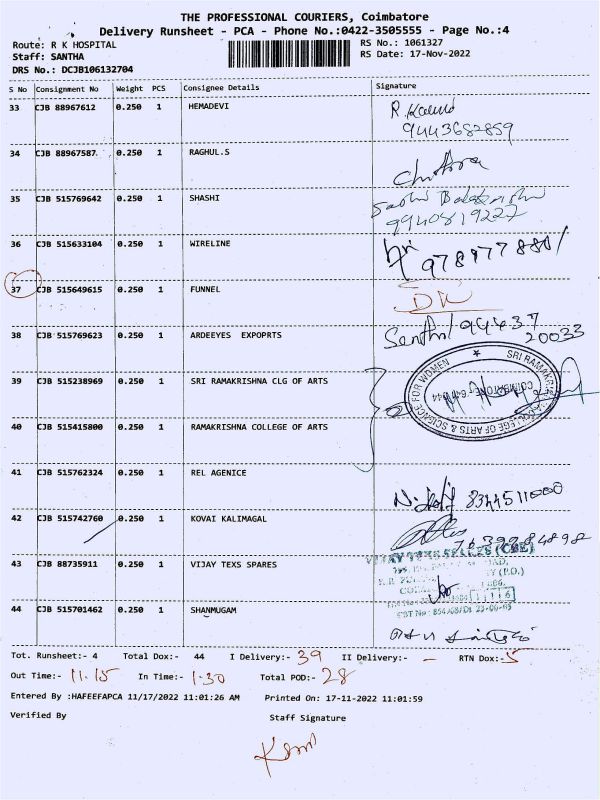 THE PROFESSIONAL COURIERS, Coimbatore
Delivery Runsheet - PCA - Phone No.:0422-3505555 - Page No.:4
Route: R K HOSPITAL
RS No.: 1061327
Staff: SANTHA
RS Date: 17-Nov-2022
DRS No.: DCJB106132704
S No Consignment No Weight PCS Consignee Details Signature
33 CJB 88967612 0.250 1 HEMADEVI R.
9443682859
34 CJB 88967587 0.250 1 RAGHUL.S Chithra
35 CJB 515769642 0.250 1 SHASHI
9940819227
36 CJB 515633104 0.250 1 WIRELINE
37 CJB 515649615 0.250 1 FUNNEL
38 CJB 515769623 0.250 1 ARDEEYES EXPOPRTS Senthil 94437
20033
39 CJB 515238969 0.250 1 SRI RAMAKRISHNA CLG OF ARTS
SRI RAMAKRISHNA COLLEGE OF ARTS & SCIENCE FOR WOMEN
COIMBATORE - 641 044
40 CJB 515415800 0.250 1 RAMAKRISHNA COLLEGE OF ARTS
41 CJB 515762324 0.250 1 REL AGENICE 8344511000
42 CJB 515742760 0.250 1 KOVAI KALIMAGAL
7639984898
43 CJB 88735911 0.250 1 VIJAY TEXS SPARES
VIJAY TEXS (CBE)
44 CJB 515701462 0.250 1 SHANMUGAM
Tot. Runsheet:- 4 Total Dox:- 44 I Delivery:- 39 II Delivery:- - RTN Dox:- 5
Out Time:- 11.15 In Time:- 1-30 Total POD:- 28
Entered By :HAFEEFAPCA 11/17/2022 11:01:26 AM Printed On: 17-11-2022 11:01:59
Verified By Staff Signature